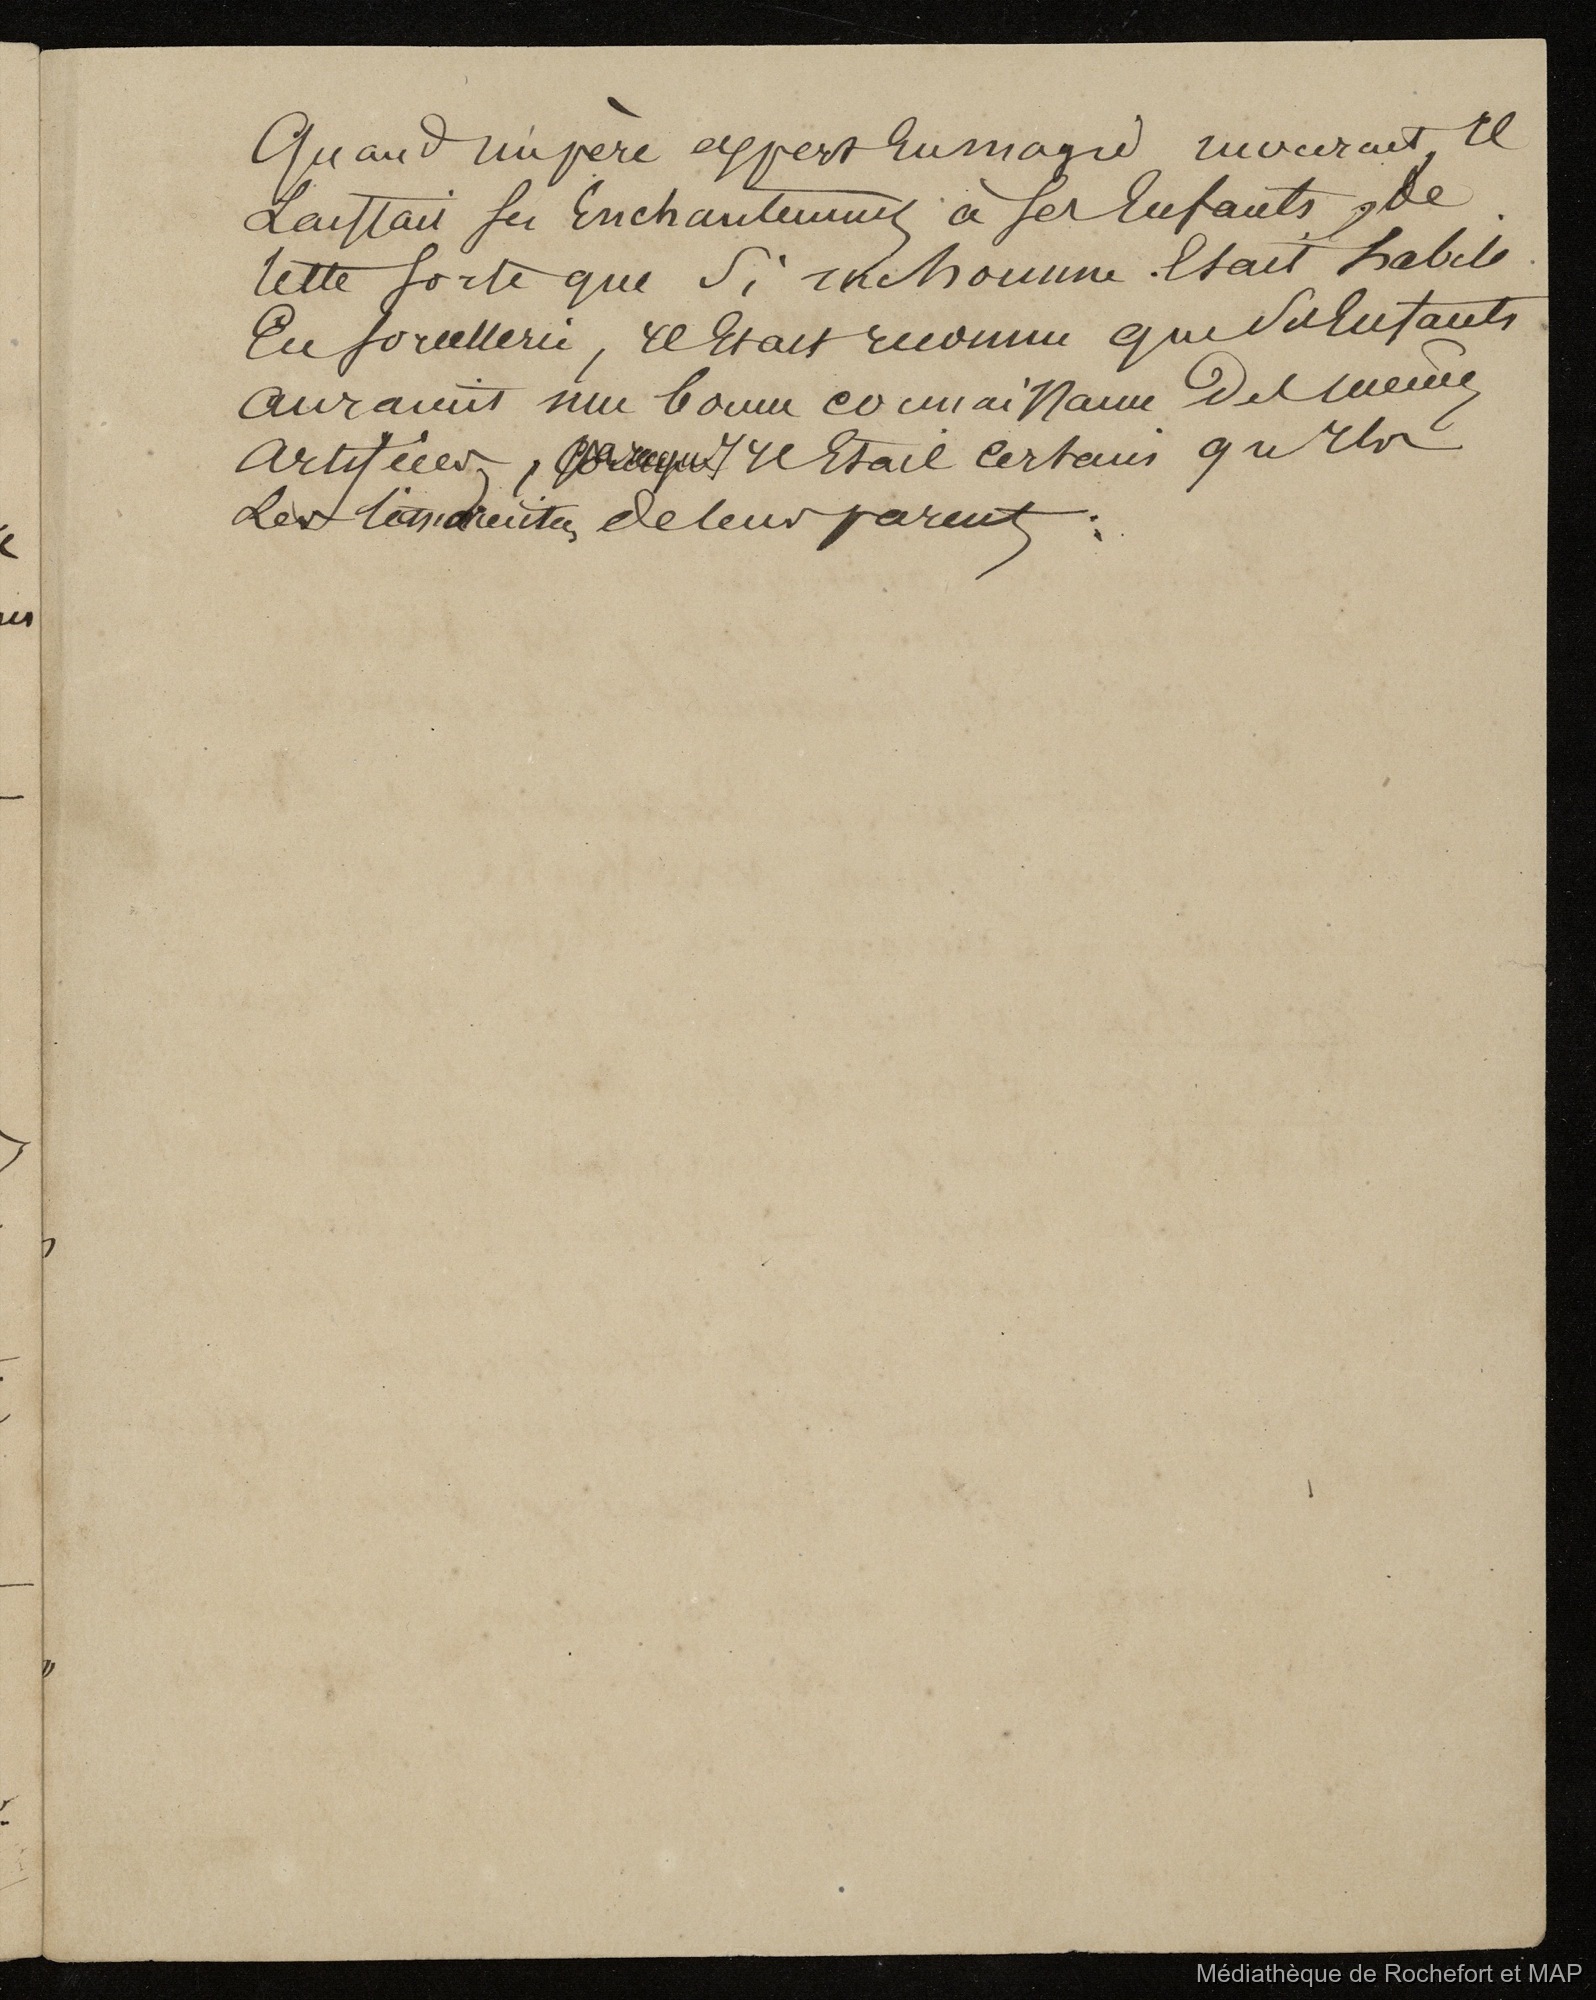 Quand un père expert en magie mourait, il
Laissait ses Enchantements à ses Enfants, de
cette sorte que si un homme était habile
En sorcellerie, il était reconnu que ses Enfants
auraient une bonne connaissance des mêmes
artifices, il était certain qu'ils
Les de leurs parents.
Médiathèque de Rochefort et MAP